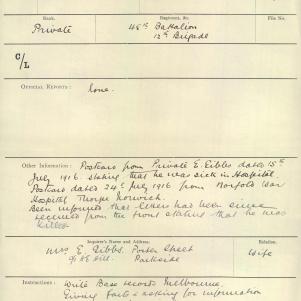 Rank. Regiment, &c. File No.
Private 48th Battalion
12th Brigade
C/L
OFFICIAL REPORTS : None.
Other Information : Postcard from Private E. Gibbs dated 15th
July 1916 stating that he was sick in Hospital.
Postcard dated 24th July 1916 from Norfolk War
Hospital Thorpe Norwich.
Been informed that letters had been since
received from the front stating that he was
killed
Inquirer's Name and Address. Relation.
Mrs E. Gibbs. Porter Street Wife
Parkside
Instructions : Write Base records Melbourne.
Giving facts & asking for information